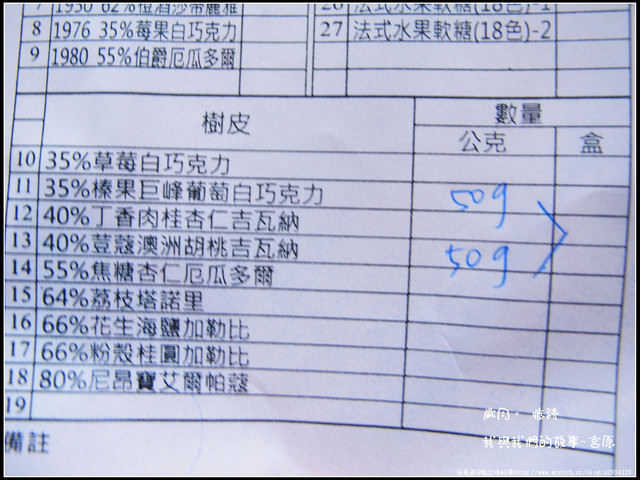 7 1950 62%橙酒莎布麗雅
8 1976 35%莓果白巧克力
9 1980 55%伯爵厄瓜多爾
26 法式水果軟糖(18色)-1
27 法式水果軟糖(18色)-2
樹皮 數量
公克 盒
10 35%草莓白巧克力
11 35%榛果巨峰葡萄白巧克力 50g
12 40%丁香肉桂杏仁吉瓦納
13 40%荳蔻澳洲胡桃吉瓦納 50g
14 55%焦糖杏仁厄瓜多爾
15 64%荔枝塔諾里
16 66%花生海鹽加勒比
17 66%粉殼桂圓加勒比
18 80%尼昂寶艾爾帕蔻
19
備註
我與我們的故事-宮原